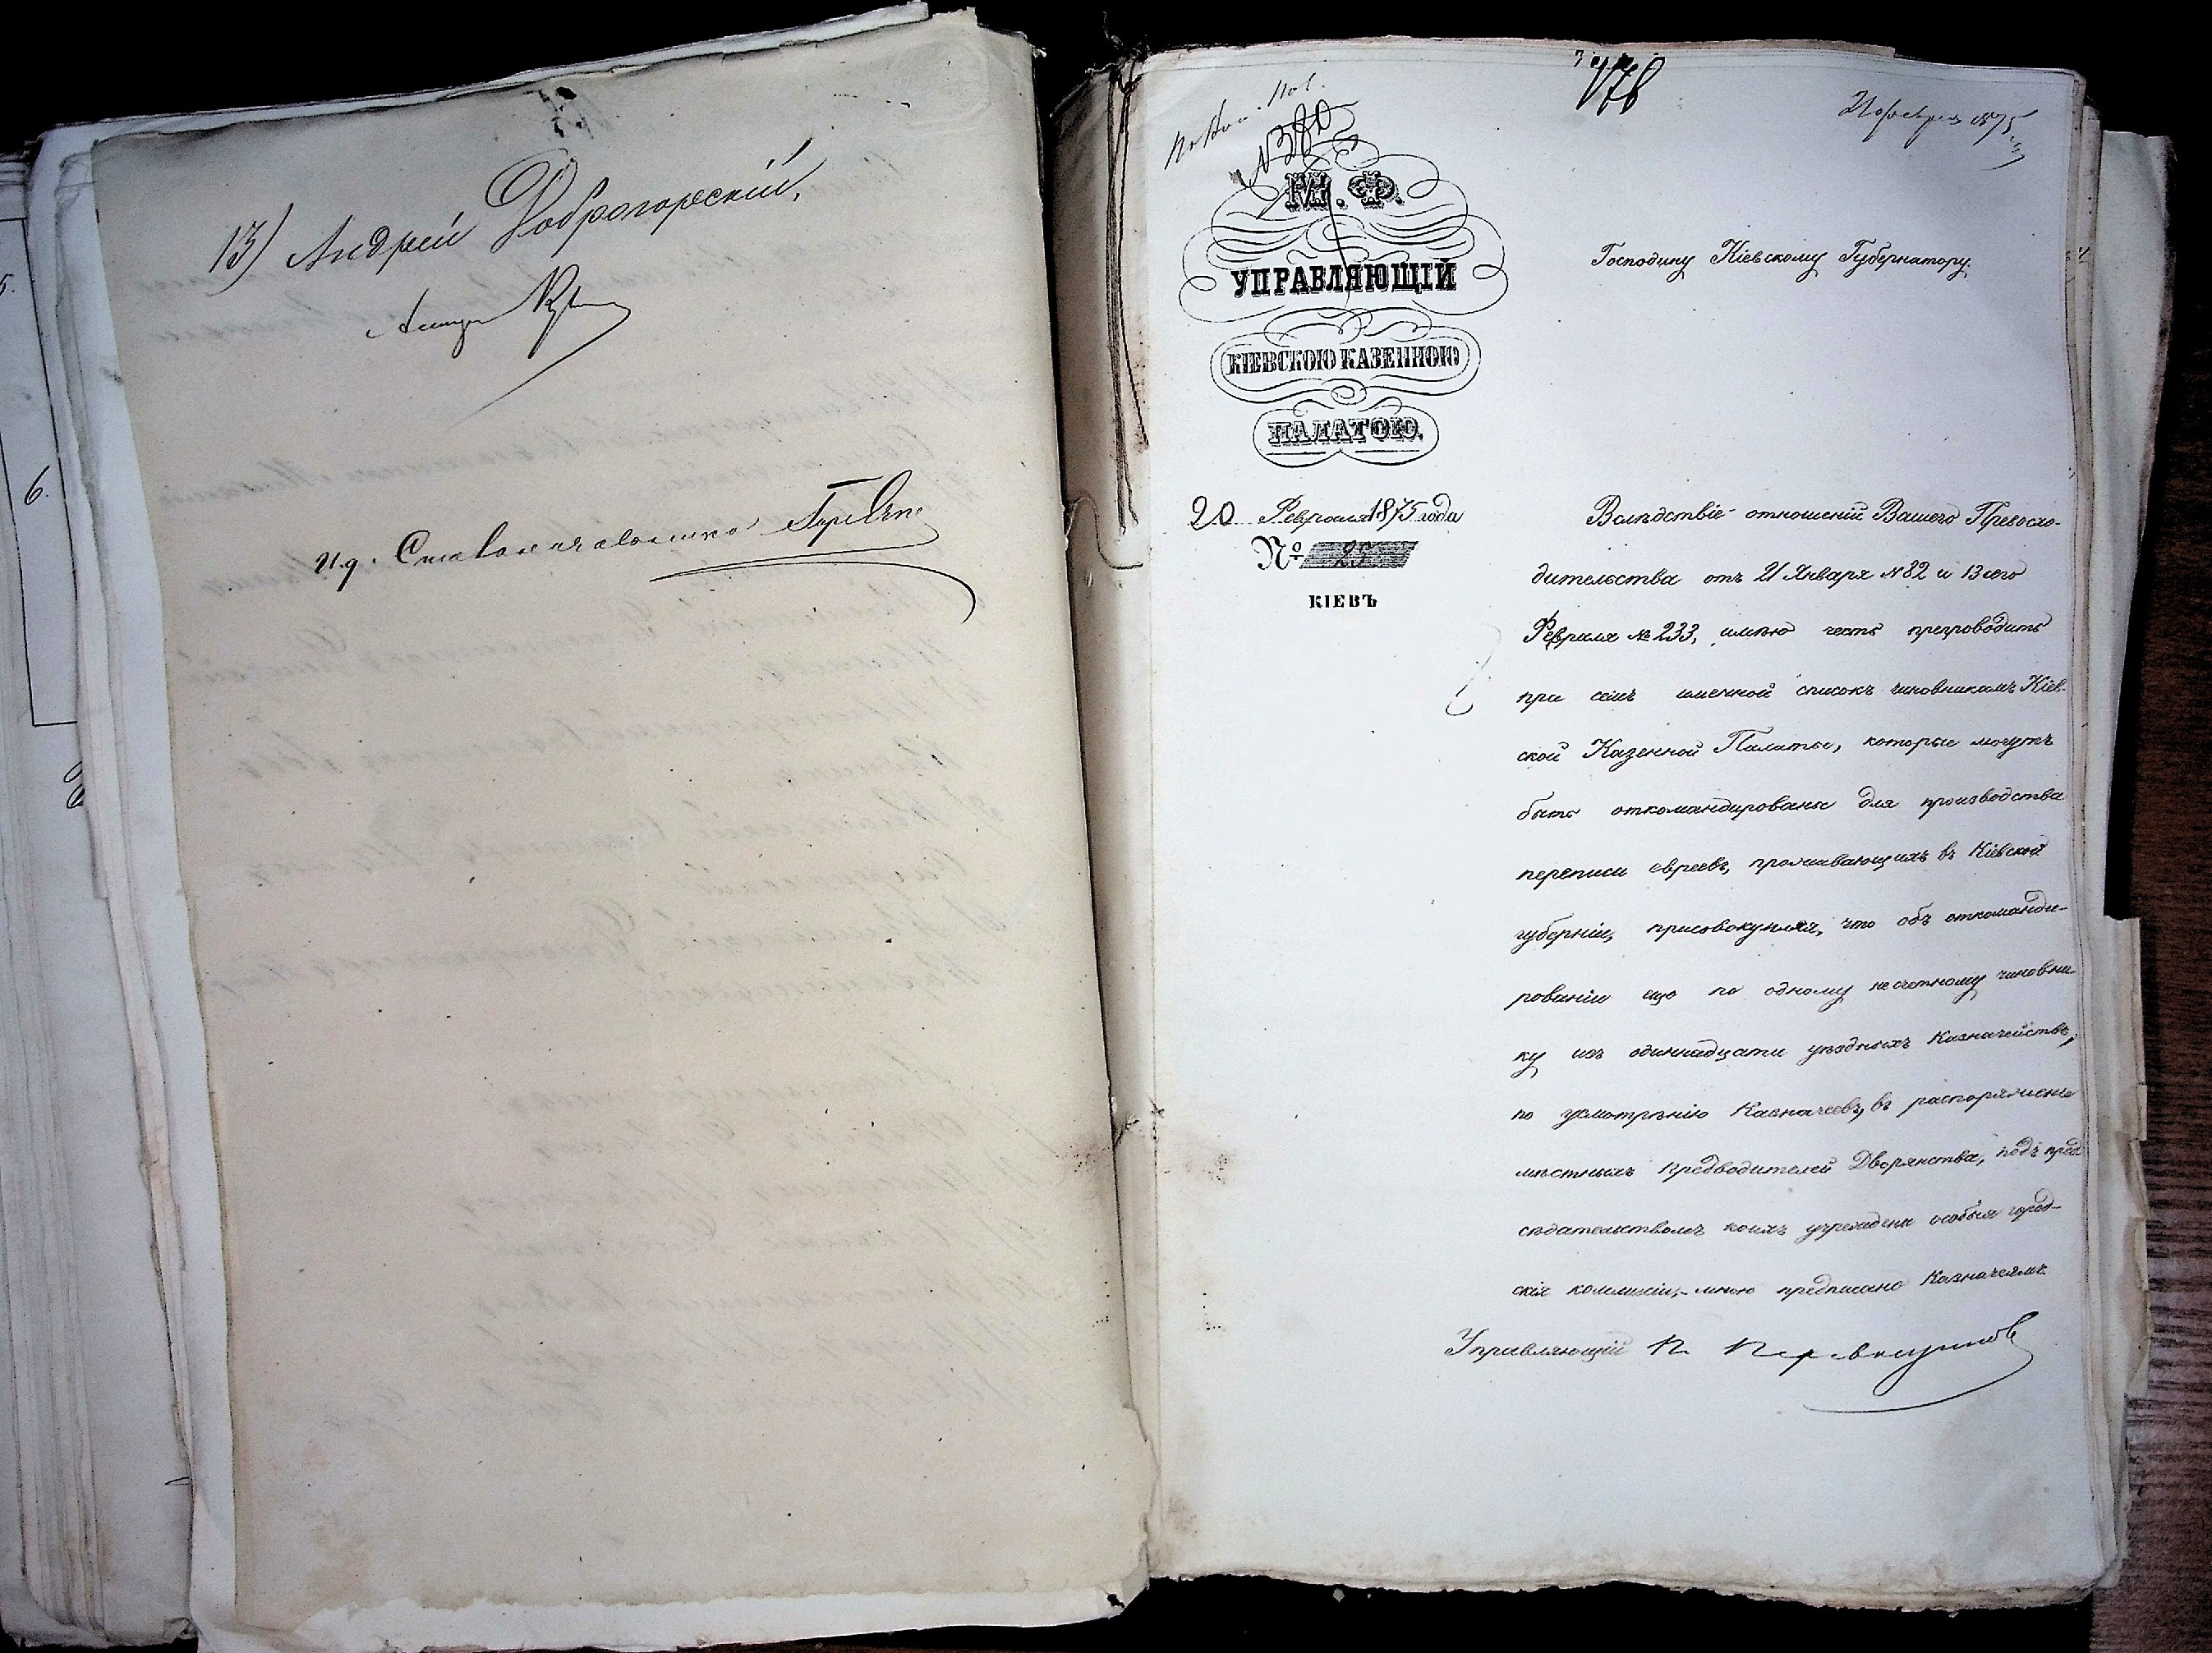 5.
6.
13) Андрей Доброгорскій.
И.д. Столоначальника
178
21 февраля 1875
№ 380
М. Ф.
УПРАВЛЯЮЩІЙ
КІЕВСКОЮ КАЗЕННОЮ
ПАЛАТОЮ.
20 Февраля 1875 года
№ 25
КІЕВЪ
Господину Кіевскому Губернатору.
Вслѣдствіе отношеній Вашего Превосхо-
дительства отъ 21 Января №82 и 13 сего
Февраля №233, имѣю честь препроводить
при семъ именной списокъ чиновникамъ Кіев-
ской Казенной Палаты, которые могутъ
быть откомандированы для производства
переписи евреевъ, проживающихъ въ Кіевской
губерніи, присовокупляя, что объ откоманди-
рованіи еще по одному несчетному чиновни-
ку изъ одиннадцати уѣздныхъ Казначействъ,
по усмотрѣнію Казначеевъ, въ распоряженіе
мѣстныхъ Предводителей Дворянства, подъ пред-
сѣдательствомъ коихъ учреждены особыя город-
скія коммисіи, мною предписано Казначеямъ.
Управляющій П.